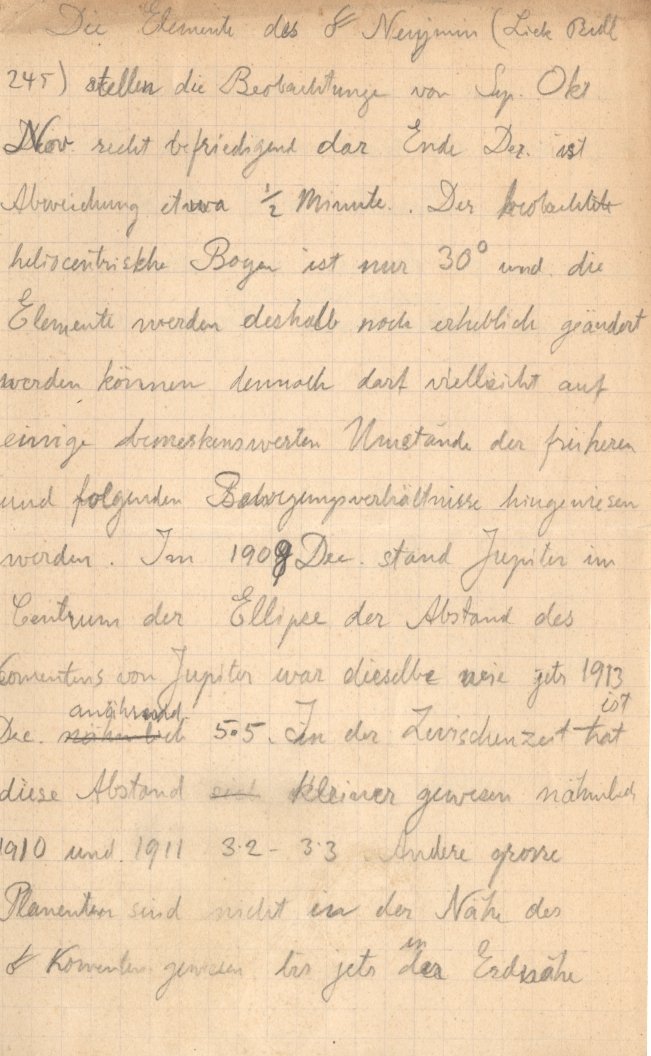 Die Elemente des ☄ Neujmin (Lick Bull
245) stellen die Beobachtunge von Sep. Okt
Nov recht befriedigend dar Ende Dez. ist
Abweichung etwa 1/2 Minute. Der beobachtete
heliocentrische Bogen ist nur 30° und die
Elemente werden deshalb noch erheblich geändert
werden können dennoch darf vielleicht auf
einige bemerkenswerten Umstände der früheren
und folgenden Bewegungsverhältnisse hingewiesen
werden. Im 1909 Dec. stand Jupiter im
Centrum der Ellipse der Abstand des
Comenten von Jupiter war dieselbe wie jets 1913
Dec. annährend 5.5. In der Zwischenzeit hat ist
diese Abstand kleiner gewesen nähmlich
1910 und 1911 3.2 - 3.3 Andere grosse
Planenten sind nicht in der Nähe des
☄ Komenten gewesen bis jets in der Erdnähe